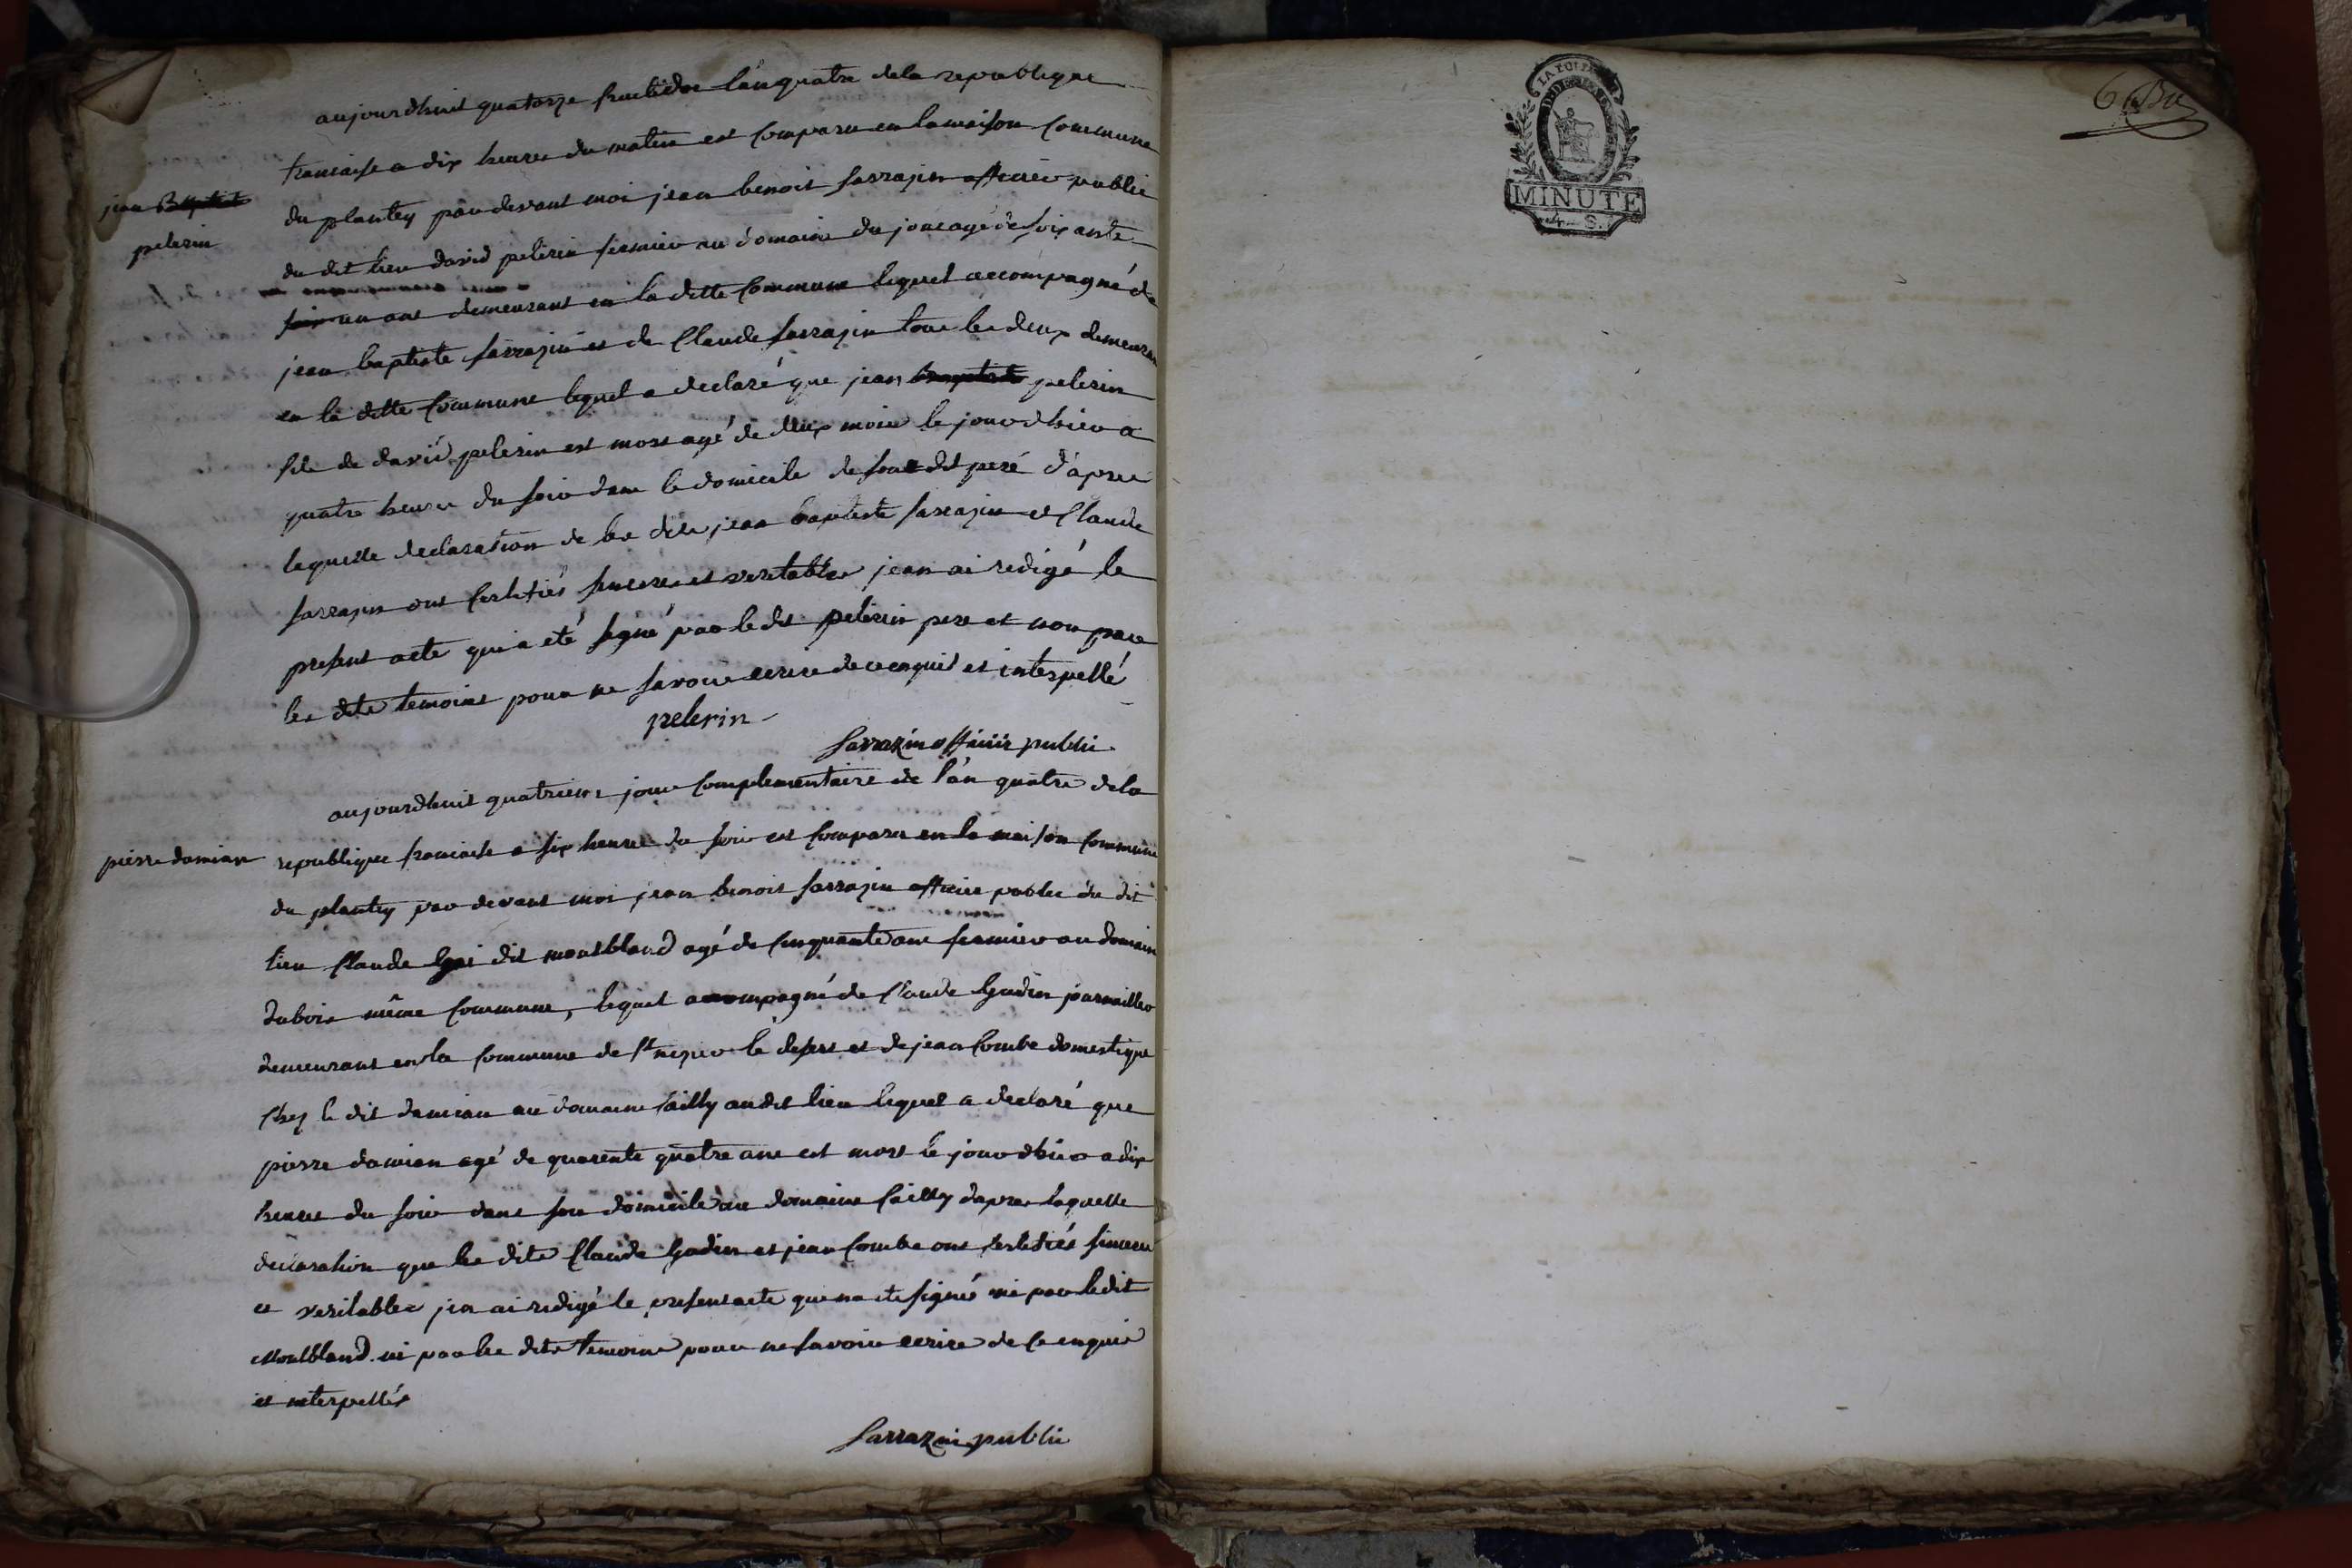 aujourdhuit quatorze fructidor l'an quatre dela republique
francaise a dix heures du matin est comparu en la maison commune
jean Baptiste
pelerin
du plantey par devant moi jean benoit sarrazin officier public
du dit lieu david pelerin fermier au domaine du jonc agé de soixante
un ans demeurant en la ditte commune lequel accompagné de
jean baptiste sarrazin et de Claude sarrazin tous les deux demeurant
en la ditte commune lequel a declaré que jean baptiste pelerin
fils de david pelerin est mort agé de deux mois le jour dhier a
quatre heures du soir dans le domicile de son dit peré d'aprés
laquelle declaration de les dits jean baptiste sarrazin et Claude
sarrazin ont certifiés sincere et veritable jean ai redigé le
present acte qui a eté signé par le dit pelerin pere et non par
les dits temoins pour ne savoir ecrire de ce enquis et interpellé
pelerin
sarrazin officir public
aujourdhuit quatriem jour complementaire de l'an quatre dela
pierre damian
republique francaise a six heures du soir est comparu en la maison commune
du plantey par devant moi jean benoit sarrazin officier public du dit
lieu Claude dit montbland agé de cinquante ans fermier au domaine
dubois même commune, lequel accompagné de Claude Gudin journaillier
demeurant en la commune de st nizier le desert et de jean Combe domestique
chez le dit damian au domaine Cailly au dit lieu lequel a declaré que
pierre damian agé de quarente quatre ans est mort le jour dhier a dix
heures du soir dans son domicile au domaine Cailly dapres laquelle
declaration que les dits Claude Gudin et jean Combe ont certifiés sincere
et veritable jen ai redigé le present acte qui na ete signé ni par ledit
Montbland ni par les dits temoins pour ne savoir ecrire de ce enquis
et interpellés
sarrazin public
6
LA
MINUTE
4 S.